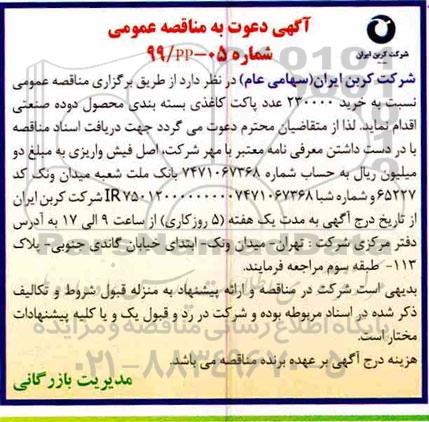 آگهی دعوت به مناقصه عمومی
شماره ۰۵-PP/۹۹
شرکت کربن ایران
شرکت کربن ایران(سهامی عام) در نظر دارد از طریق برگزاری مناقصه عمومی
نسبت به خرید ۲۳۰۰۰۰ عدد پاکت کاغذی بسته بندی محصول دوده صنعتی
اقدام نماید. لذا از متقاضیان محترم دعوت می گردد جهت دریافت اسناد مناقصه
با در دست داشتن معرفی نامه معتبر با مهر شرکت، اصل فیش واریزی به مبلغ دو
میلیون ریال به حساب شماره ۷۴۷۱۰۶۷۳۶۸ بانک ملت شعبه میدان ونک کد
۶۵۲۲۷ و شماره شبا IR۷۵۰۱۲۰۰۰۰۰۰۰۰۰۷۴۷۱۰۶۷۳۶۸ شرکت کربن ایران
از تاریخ درج آگهی به مدت یک هفته (۵ روزکاری) از ساعت ۹ الی ۱۷ به آدرس
دفتر مرکزی شرکت : تهران- میدان ونک- ابتدای خیابان گاندی جنوبی- پلاک
۱۱۳- طبقه سوم مراجعه فرمایند.
بدیهی است شرکت در مناقصه و ارائه پیشنهاد به منزله قبول شروط و تکالیف
ذکر شده در اسناد مربوطه بوده و شرکت در رد و قبول یک و یا کلیه پیشنهادات
مختار است.
هزینه درج آگهی بر عهده برنده مناقصه می باشد.
مدیریت بازرگانی
پایگاه اطلاع رسانی مناقصه و مزایده
۰۲۱-۸۸۳۴۹۶۷۰-۵